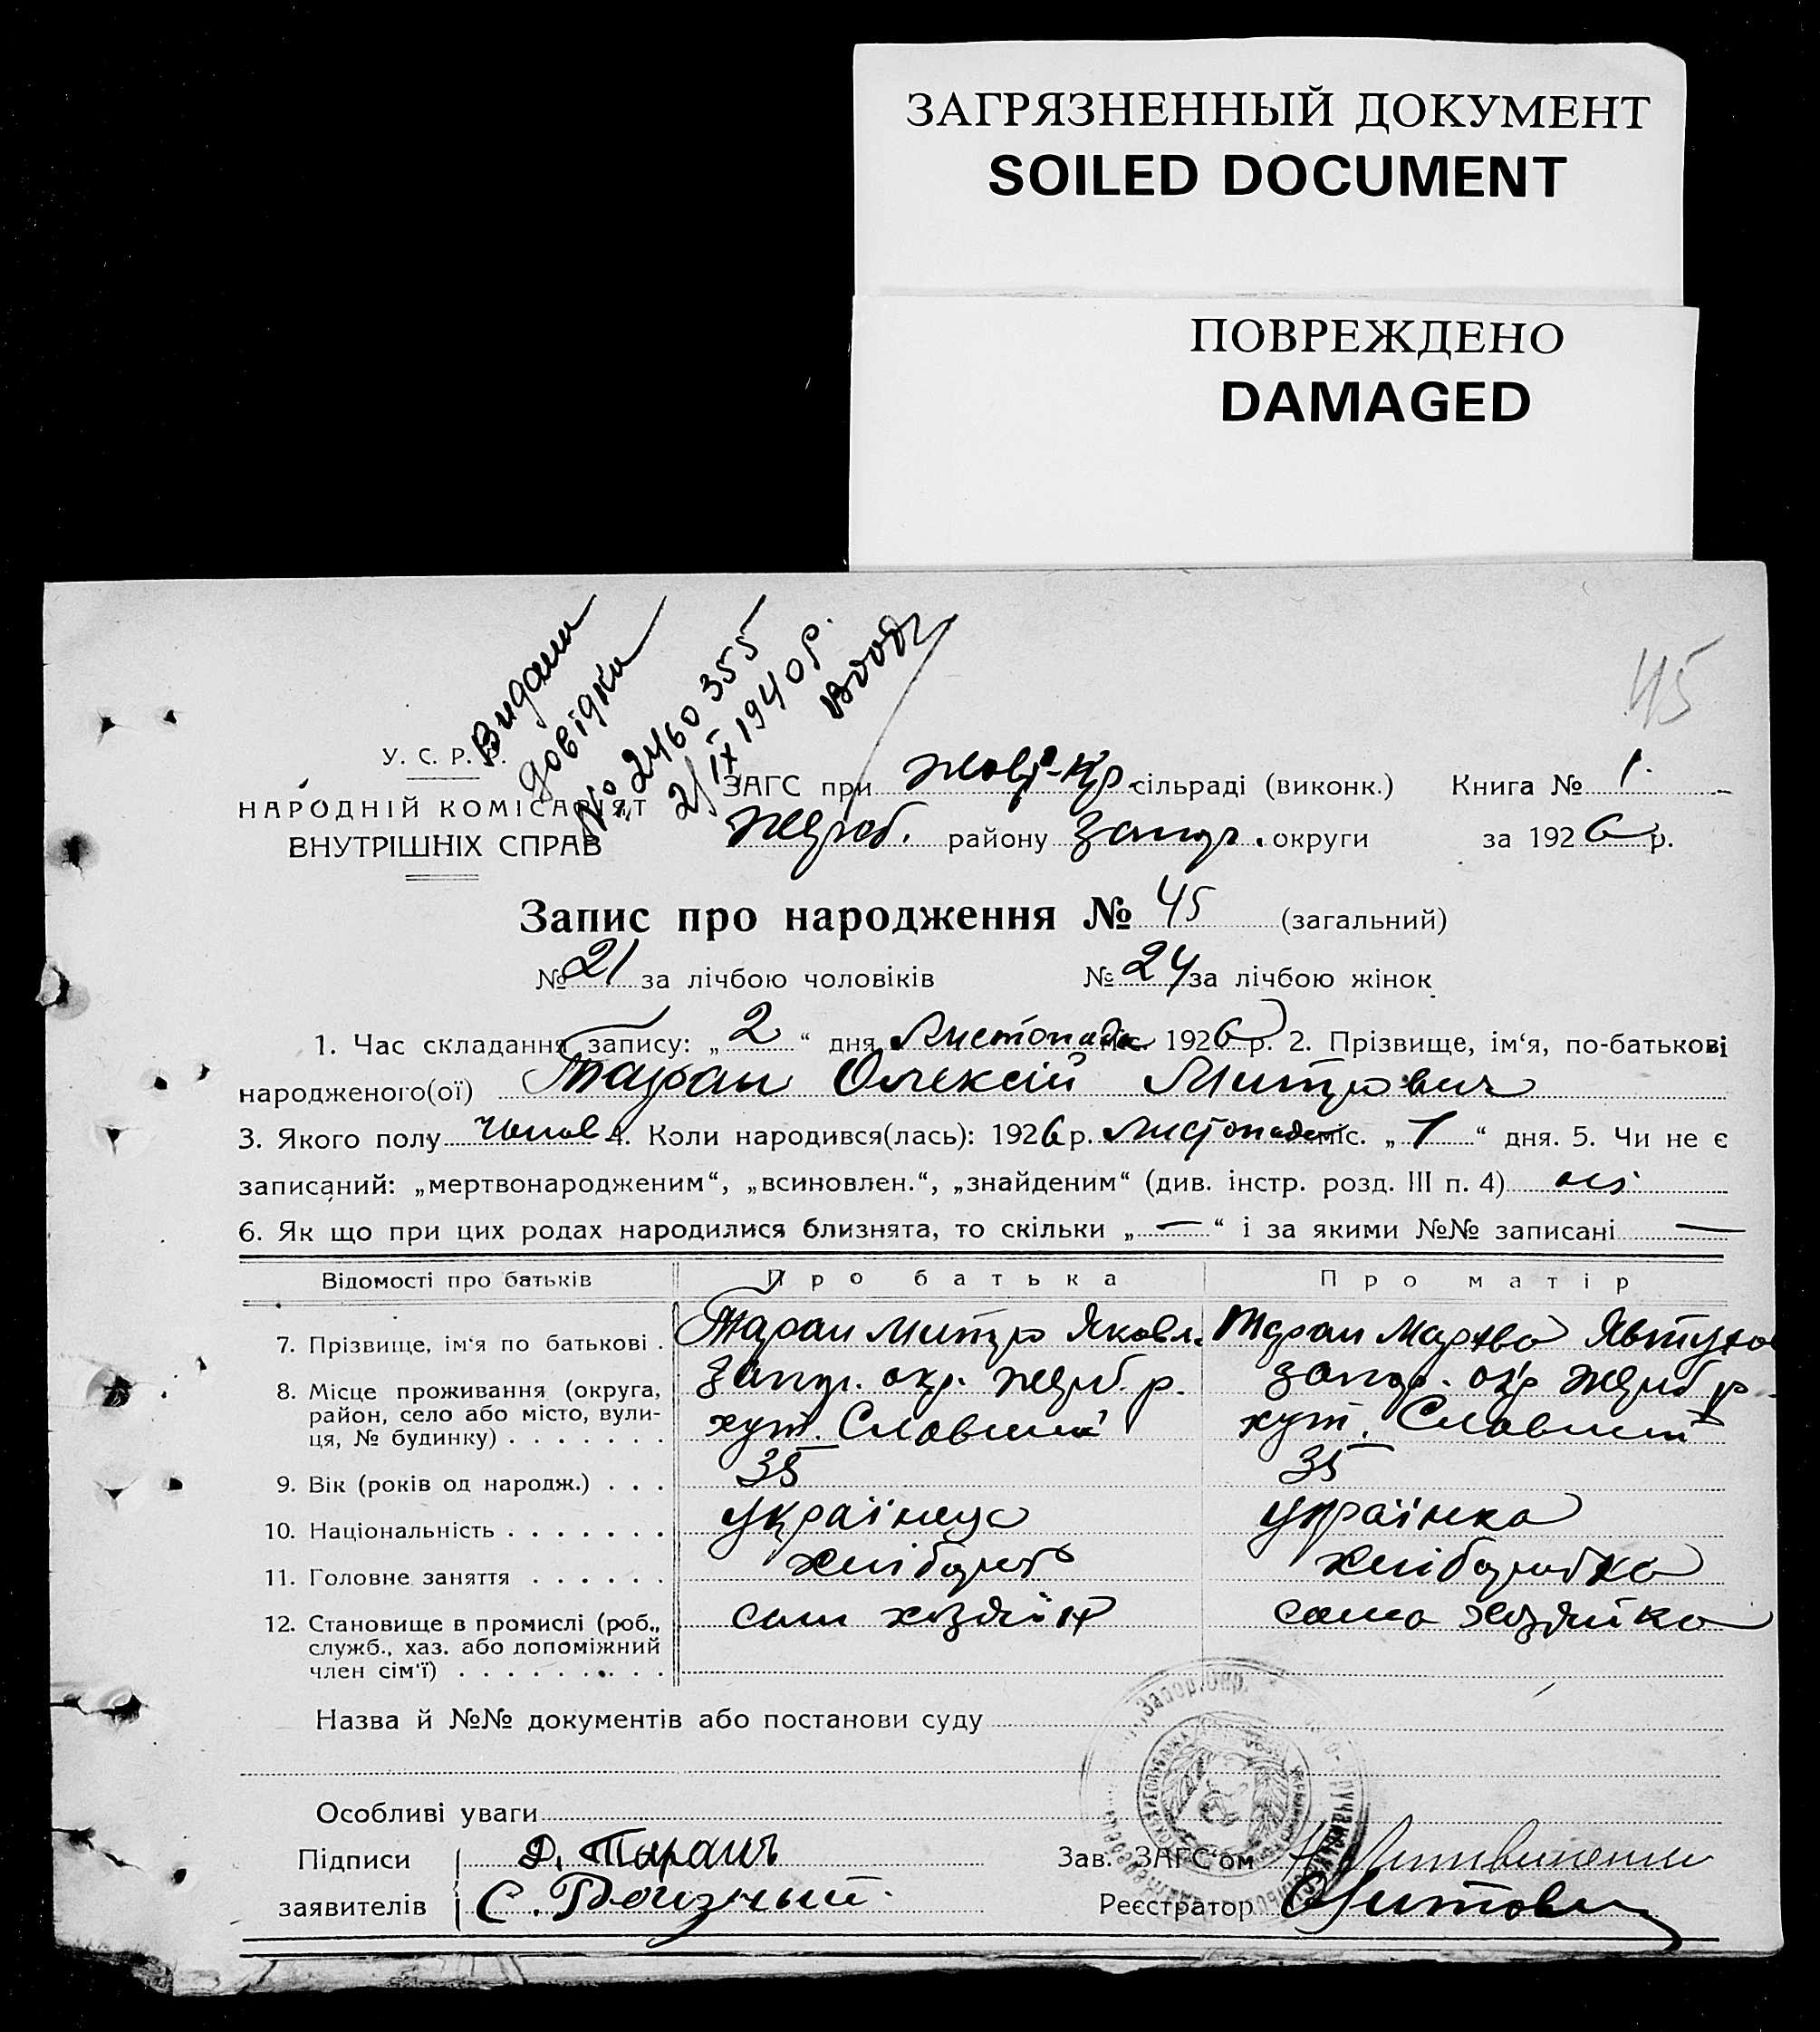 ЗАГРЯЗНЕННЫЙ ДОКУМЕНТ
SOILED DOCUMENT
ПОВРЕЖДЕНО
DAMAGED
45
Видани
довідки
№ 2460355
2/ІХ 1940 р.
У. С. Р. Р.
НАРОДНІЙ КОМІСАРІЯТ
ВНУТРІШНІХ СПРАВ
ЗАГС при сільраді (виконк.) Книга № 1
Жереб. району Запор. округи за 1926 р.
Запис про народження № 45 (загальний)
№ 21 за лічбою чоловіків № 24 за лічбою жінок
1. Час складання запису: „ 2 “ дня Листопада 1926 р. 2. Прізвище, ім‘я, по-батькові
народженого(ої) Таран Олексій Митрович
3. Якого полу чолов 4. Коли народився(лась): 1926 р. листопада міс. „ 1 “ дня. 5. Чи не є
записаний: „мертвонародженим“, „всиновлен.“, „знайденим“ (див. інстр. розд. III п. 4) ні
6. Як що при цих родах народилися близнята, то скільки „ — “ і за якими №№ записані —
Відомості про батьків Про батька Про матір
7. Прізвище, ім‘я по батькові . Таран Митро Яковл. Таран Марѳа Явтухов
8. Місце проживання (округа, Запор. окр. Жереб. р. Запор. окр Жереб р.
район, село або місто, вули- хут. хут.
ця, № будинку) . . . . . . .
9. Вік (років од народж.) . . . 35 35
10. Національність . . . . . . . українець українка
11. Головне заняття . . . . . . хлібороб хліборобка
12. Становище в промислі (роб., сам хозяїн сама хозяйка
служб., хаз. або допоміжний
член сім‘ї) . . . . . . . . .
Назва й №№ документів або постанови суду
Особливі уваги
Підписи Д. Таранъ Зав. ЗАГС‘ом Литвиненко
заявителів С. Реєстратор
Запор. Окр.